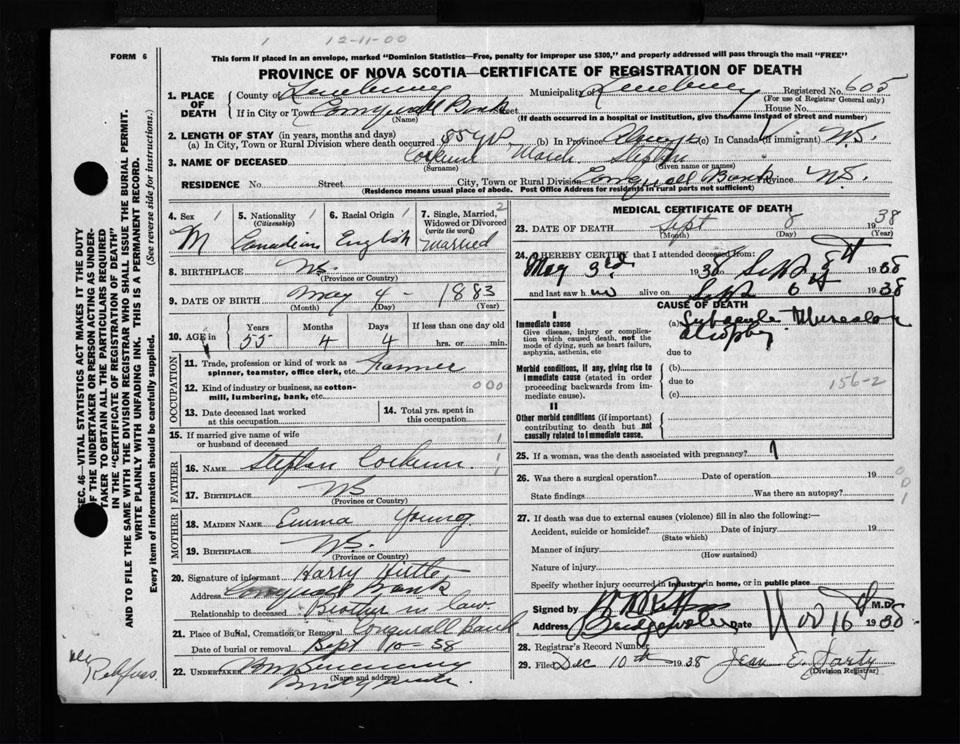 1 12-11-00
FORM 6
This form if placed in an envelope, marked "Dominion Statistics—Free, penalty for improper use $300," and properly addressed will pass through the mail "FREE"
PROVINCE OF NOVA SCOTIA—CERTIFICATE OF REGISTRATION OF DEATH
1. PLACE OF DEATH
County of Lunenburg Municipality Lunenburg Registered No. 605
(For use of Registrar General only)
If in City or Town Conquerall Bank Street House No.
(Name) (If death occurred in a hospital or institution, give the name instead of street and number)
2. LENGTH OF STAY (in years, months and days)
(a) In City, Town or Rural Division where death occurred 55 (b) In Province Always (c) In Canada (if immigrant) N.S.
3. NAME OF DECEASED March Stephen
(Surname) (Given name or names)
RESIDENCE No. Street City, Town or Rural Division Conquerall Bank Province N.S.
(Residence means usual place of abode. Post Office Address for residents in rural parts not sufficient)
4. Sex 1
M
5. Nationality 1
(Citizenship)
Canadian
6. Racial Origin 1
English
7. Single, Married, Widowed or Divorced 2
(write the word)
Married
8. BIRTHPLACE N.S.
(Province or Country)
9. DATE OF BIRTH May 4 - 1883
(Month) (Day) (Year)
10. AGE in
Years Months Days If less than one day old
55 4 4 hrs. or min.
OCCUPATION
11. Trade, profession or kind of work as spinner, teamster, office clerk, etc. Farmer
12. Kind of industry or business, as cotton-mill, lumbering, bank, etc. 000
13. Date deceased last worked at this occupation
14. Total yrs. spent in this occupation
15. If married give name of wife or husband of deceased 1
FATHER
16. NAME Stephen 1
17. BIRTHPLACE N.S. 1
(Province or Country)
MOTHER
18. MAIDEN NAME Emma Young
19. BIRTHPLACE N.S.
(Province or Country)
20. Signature of informant Harry Hirtle
Address Conquerall Bank
Relationship to deceased Brother in law
21. Place of Burial, Cremation or Removal Conquerall Bank
Date of burial or removal Sept 10-38
22. UNDERTAKER
(Name and address)
MEDICAL CERTIFICATE OF DEATH
23. DATE OF DEATH Sept 8 1938
(Month) (Day) (Year)
24. I HEREBY CERTIFY that I attended deceased from:
May 3rd 1938 Sept 8th 1938
and last saw h im alive on Sept 6th 1938
CAUSE OF DEATH
I
Immediate cause
Give disease, injury or complication which caused death, not the mode of dying, such as heart failure, asphyxia, asthenia, etc
(a) Subacute Muscular atrophy
due to
Morbid conditions, if any, giving rise to immediate cause (stated in order proceeding backwards from immediate cause).
(b)
due to 156-2
(c)
II
Other morbid conditions (if important) contributing to death but not causally related to immediate cause.
25. If a woman, was the death associated with pregnancy?
26. Was there a surgical operation? Date of operation 19 0
State findings Was there an autopsy? 0 1
27. If death was due to external causes (violence) fill in also the following:—
Accident, suicide or homicide? Date of injury 19
(State which)
Manner of injury
(How sustained)
Nature of injury
Specify whether injury occurred in industry, in home, or in public place
Signed by M.D.
Address Bridgewater Date Nov 16th 1938
28. Registrar's Record Number
29. Filed Dec 10th 1938 Jean E.
(Division Registrar)
SEC. 46—VITAL STATISTICS ACT MAKES IT THE DUTY
OF THE UNDERTAKER OR PERSON ACTING AS UNDER-
TAKER TO OBTAIN ALL THE PARTICULARS REQUIRED
IN THE "CERTIFICATE OF REGISTRATION OF DEATH"
AND TO FILE THE SAME WITH THE DIVISION REGISTRAR WHO SHALL ISSUE THE BURIAL PERMIT.
WRITE PLAINLY WITH UNFADING INK. THIS IS A PERMANENT RECORD.
Every item of information should be carefully supplied. (See reverse side for instructions.)